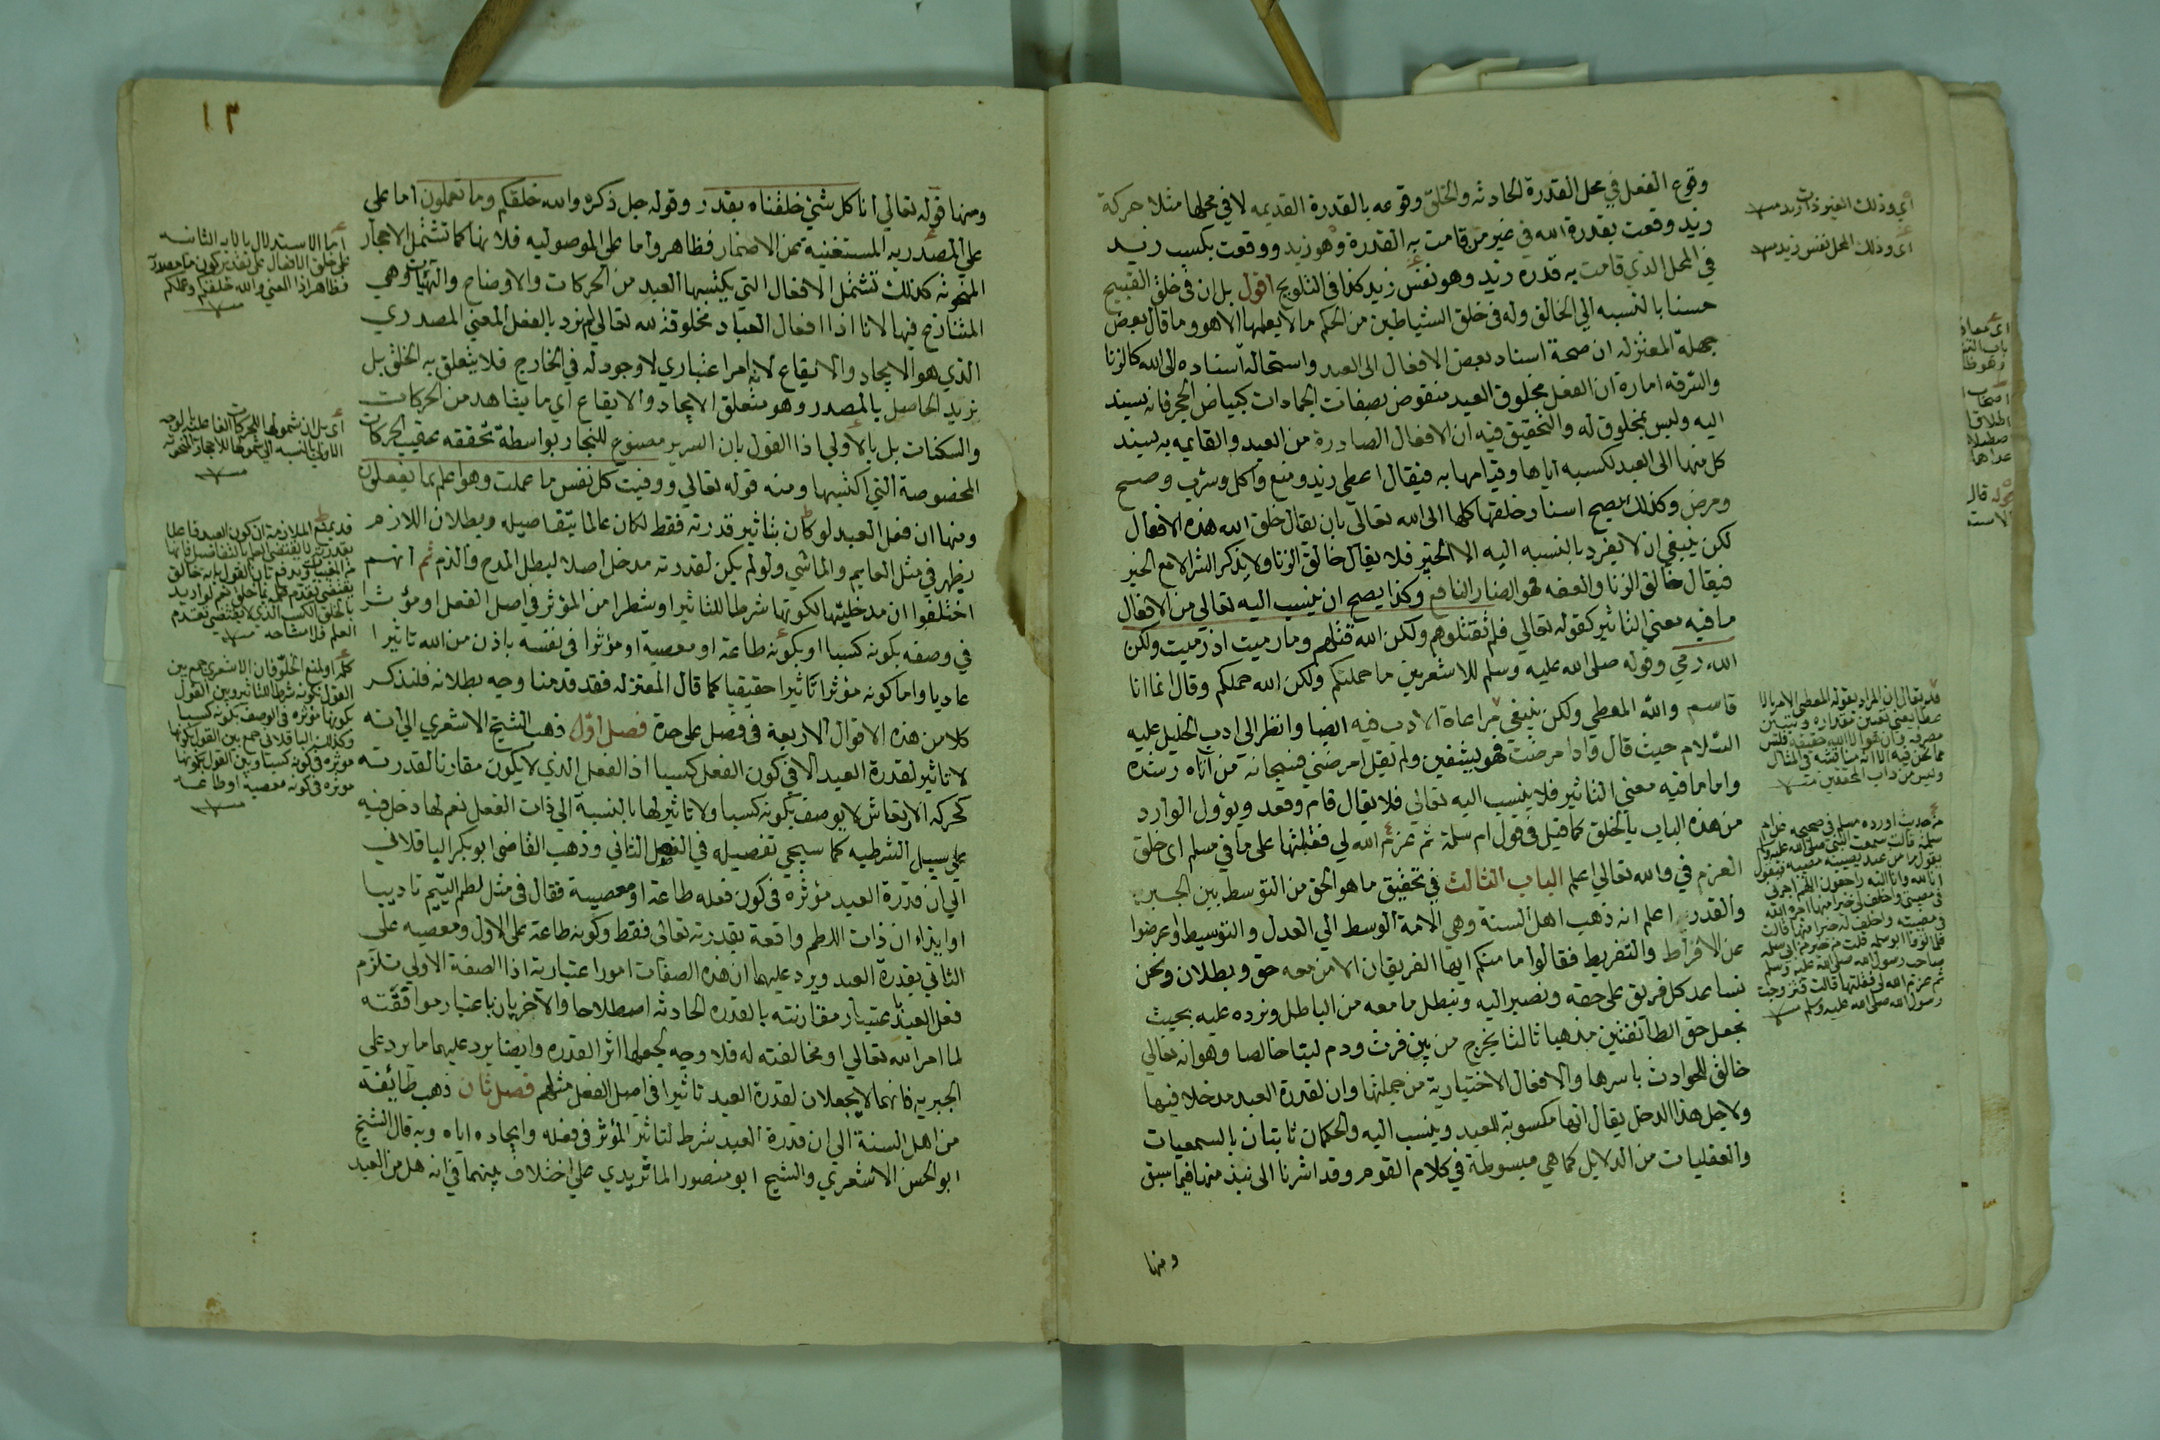 وقوع الفعل في محل القدرة الحادثه والخلق وقوعه بالقدرة القديمه لا في محلها مثلا حركة
زيد وقعت بقدرة الله في غير من قامت به القدرة وهو زيد ووقعت بكسب زيد
في المحل الذي قامت به قدره زيد وهو نفس زيد كذا في التلويح اقول بل ان في خلق القبيح
حسنا بالنسبه الى الخالق وله في خلق الشياطين من الحكم ما لا يعلمها الا هو وما قال بعض
جهلة المعتزله ان صحة اسناد بعض الافعال الى العبد واستحالة اسناده الى الله كالزنا
والسرقه امارة ان الفعل مخلوق العبد منقوض بصفات الجمادات كبياض الحجر فانه يسند
اليه وليس بمخلوق له والتحقيق فيه ان الافعال الصادرة من العبد والقايمه به يسند
كل منها الى العبد لكسبه اياها وقيامها به فيقال اعطى زيد ومنع واكل وشرب وصح
ومرض وكذلك يصح اسناد خلقها كلها الى الله تعالى بان يقال خلق الله هذه الافعال
لكن ينبغي ان لا يفرد بالنسبه اليه الا الخير فلا يقال خالق الزنا ولا يذكر الشر الا مع الخير
فيقال خالق الزنا والعفه هو الضار النافع وكذا يصح ان ينسب اليه تعالى من الافعال
ما فيه معني التاثير كقوله تعالى فلم تقتلوهم ولكن الله قتلهم وما رميت اذ رميت ولكن
الله رمي وقوله صلى الله عليه وسلم للاشعريين ما حملتكم ولكن الله حملكم وقال انما انا
قاسم والله المعطي ولكن ينبغي مراعاة الادب فيه ايضا وانظر الى ادب الخليل عليه
السلام حيث قال واذا مرضت فهو يشفين ولم يقل امرضني فسبحانه من آتاه رشده
واما ما فيه معني التاثير فلا ينسب اليه تعالى فلا يقال قام وقعد ويؤول الوارد
من هذه الباب بالخلق كما قيل في قول ام سلمة ثم عزم الله لي فقلتها على ما في مسلم اى خلق
العزم في والله تعالى اعلم الباب الثالث في تحقيق ما هو الحق من التوسط بين الجبر
والقدر اعلم انه ذهب اهل السنة وهي الامة الوسط الي العدل والتوسيط واعرضوا
عن الافراط والتفريط فقالوا ما منكم ايها الفريقان الا من معه حق وبطلان ونحن
نساعد كل فريق على حقه ونصير اليه ونبطل ما معه من الباطل ونرده عليه بحيث
نجعل حق الطائفتين مذهبا ثالثا يخرج من بين فرث ودم لبنا خالصا وهو انه تعالى
خالق للحوادث باسرها والافعال الاختيارية من جملتها وان لقدرة العبد مدخلا فيها
ولاجل هذا الدخل يقال انها مكسوبة للعبد وينسب اليه والحكمان ثابتان بالسمعيات
والعقليات من الدلايل كما هي مبسوطة في كلام القوم وقد اشرنا الى نبذ منها فيما سبق
ومنها
اي وذلك الغير ذات زيد
اى وذلك المحل نفس زيد
قد يقال ان المراد بقوله المعطي الامر الا
من حديث اورده مسلم في صحيحه عن ام
سلمة قالت سمعت النبي صلى الله عليه وسلم
يقول ما من عبد يصيبه مصيبه فيقول
انا لله وانا اليه راجعون اللهم اجرني
في مصيبتي واخلف لي خيرا منها اجره الله
في مصيبته واخلف له خيرا منها قالت
فلما توفي ابو سلمه قلت من خير من ابي سلمه
صاحب رسول الله صلى الله عليه وسلم
ثم عزم الله لي فقلتها قالت فتزوجت
رسول الله صلى الله عليه وسلم
١٣
ومنها قوله تعالى انا كل شئ خلقناه بقدر وقوله جل ذكره والله خلقكم وما تعملون اما على
على المصدريه المستغنية عن الاضمار فظاهر واما على الموصوليه فلانها كما تشتمل الاحجار
المنحوته كذلك تشتمل الافعال التي يكتسبها العبد من الحركات والاوضاع والهيئات وهي
المتنازع فيها لانا اذا افعال العباد مخلوقة لله تعالى لم نرد بالفعل المعني المصدري
الذي هو الايجاد والايقاع لانه امر اعتباري لا وجود له في الخارج فلا يتعلق به الخلق بل
نريد الحاصل بالمصدر وهو متعلق الايجاد والايقاع اي ما يشاهد من الحركات
والسكنات بل بالاولي اذا القول بان السرير مصنوع للنجار بواسطة تحققه عقيب الحركات
المخصوصة التي اكتسبها ومنه قوله تعالى ووفيت كل نفس ما عملت وهو اعلم بما يفعلون
ومنها ان فعل العبد لو كان بتاثير قدرته فقط لكان عالما بتفاصيله وبطلان اللازم
يظهر في مثل النايم والماشي ولو لم يكن لقدرته مدخل اصلا لبطل المدح والذم ثم انهم
اختلفوا ان مدخليتها لكونها شرطا للتاثير او شطرا من المؤثر في اصل الفعل او مؤثرا
في وصفه بكونه كسبا او بكونه طاعة او معصية او مؤثرا في نفسه باذن من الله تاثيرا
عاديا واما كونه مؤثرا تاثيرا حقيقيا كما قال المعتزله فقد قدمنا وجه بطلانه فلنذكر
كلا من هذه الاقوال الاربعة في فصل على حدة فصل اول ذهب الشيخ الاشعري الى انه
لا تاثير لقدرة العبد الا في كون الفعل كسبا اذ الفعل الذي لا يكون مقارنا لقدرته
كحركه الارتعاش لا يوصف بكونه كسبا ولا تاثير لها بالنسبة الى ذات الفعل نعم لها دخل فيه
على سبيل الشرطيه كما سيجي تفصيله في الفصل الثاني وذهب القاضي ابو بكر الباقلاني
الى ان قدرة العبد مؤثره في كون فعله طاعة او معصية فقال في مثل لطم اليتيم تاديبا
او ايذاء ان ذات اللطم واقعة بقدرته تعالى فقط وكونه طاعة على الاول ومعصيه على
الثاني بقدرة العبد ويرد عليهما ان هذه الصفات امور اعتبارية اذ الصفة الاولي تلزم
فعل العبد باعتبار مقارنته بالقدره الحادثه اصطلاحا والآخريان باعتبار موافقته
لما امر الله تعالى او مخالفته له فلا وجه لجعلها اثر القدره وايضا يرد عليهما ما يرد على
الجبريه فانهما لا يجعلان لقدرة العبد تاثيرا في اصل الفعل مثلهم فصل ثان ذهب طائفه
من اهل السنة الى ان قدرة العبد شرط لتاثير المؤثر في فعله وايجاده اياه وبه قال الشيخ
ابو الحسن الاشعري والشيخ ابو منصور الماتريدي على اختلاف بينهما في انه هل من العبد
اما الاستدلال بالايه الثانيه
على خلق الافعال على تقدير كون ما مصدريه
فظاهر اذ المعني والله خلقكم وعملكم
اى بل ان شمولها للحركات الفاعليه بالوجه
الاولي بالنسبه الى شمولها للاحجار المنحوته
قد يمنع الملازمة ان كون العبد فاعلا
بالخلق الكسب الذي لا يقتضي تقدم
العلم فلا مشاحه
القول بكونه شرطا للتاثير وبين القول
بكونها مؤثره في الوصف بكونه كسبا
وكذلك الباقلاني جمع بين القول بكونها
مؤثره في كونه كسبا وبين القول بكونها
موثره في كونه معصيه او طاعه